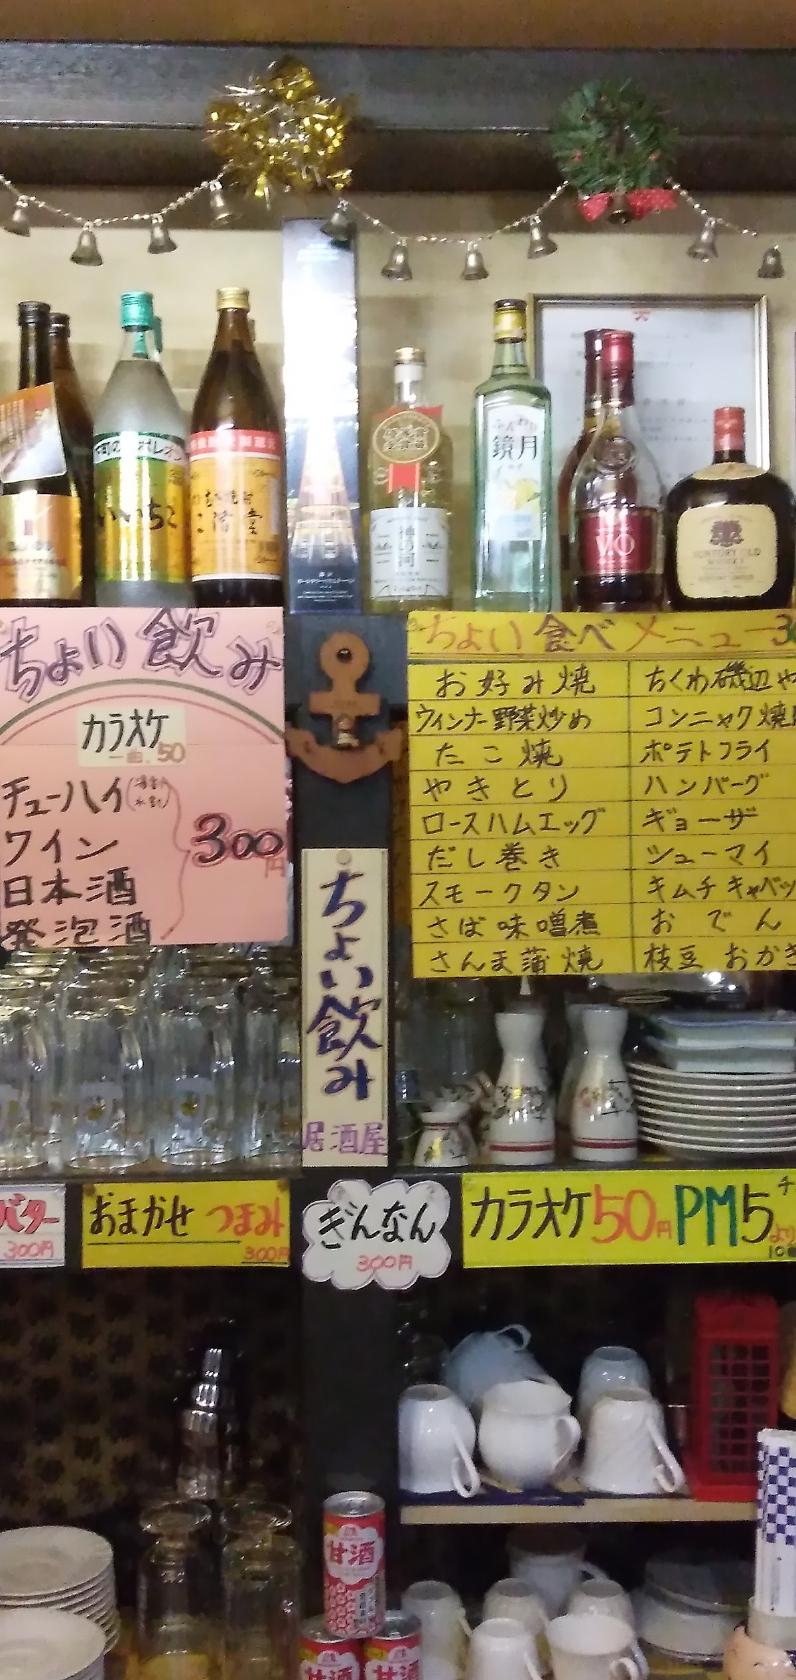 いいちこ
二階堂
神の河
ふんわり
鏡月
V.O
SUNTORY OLD
WHISKY
ちょい飲み
カラオケ
一曲.50
チューハイ
ワイン
日本酒
発泡酒
300円
ちょい飲み
居酒屋
ちょい食べメニュー
お好み焼
ウィンナー野菜炒め
たこ焼
やきとり
ロースハムエッグ
だし巻き
スモークタン
さば味噌煮
さんま蒲焼
ちくわ磯辺や
コンニャク焼
ポテトフライ
ハンバーグ
ギョーザ
シューマイ
キムチキャベツ
おでん
枝豆 おかき
バター
300円
おまかせ つまみ
300円
ぎんなん
300円
カラオケ50円PM5より
甘酒
甘酒
甘酒